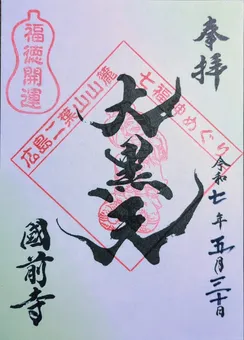 奉拝
福徳開運
広島二葉山山麓
七福神めぐり
大黒天
令和七年五月三十日
國前寺